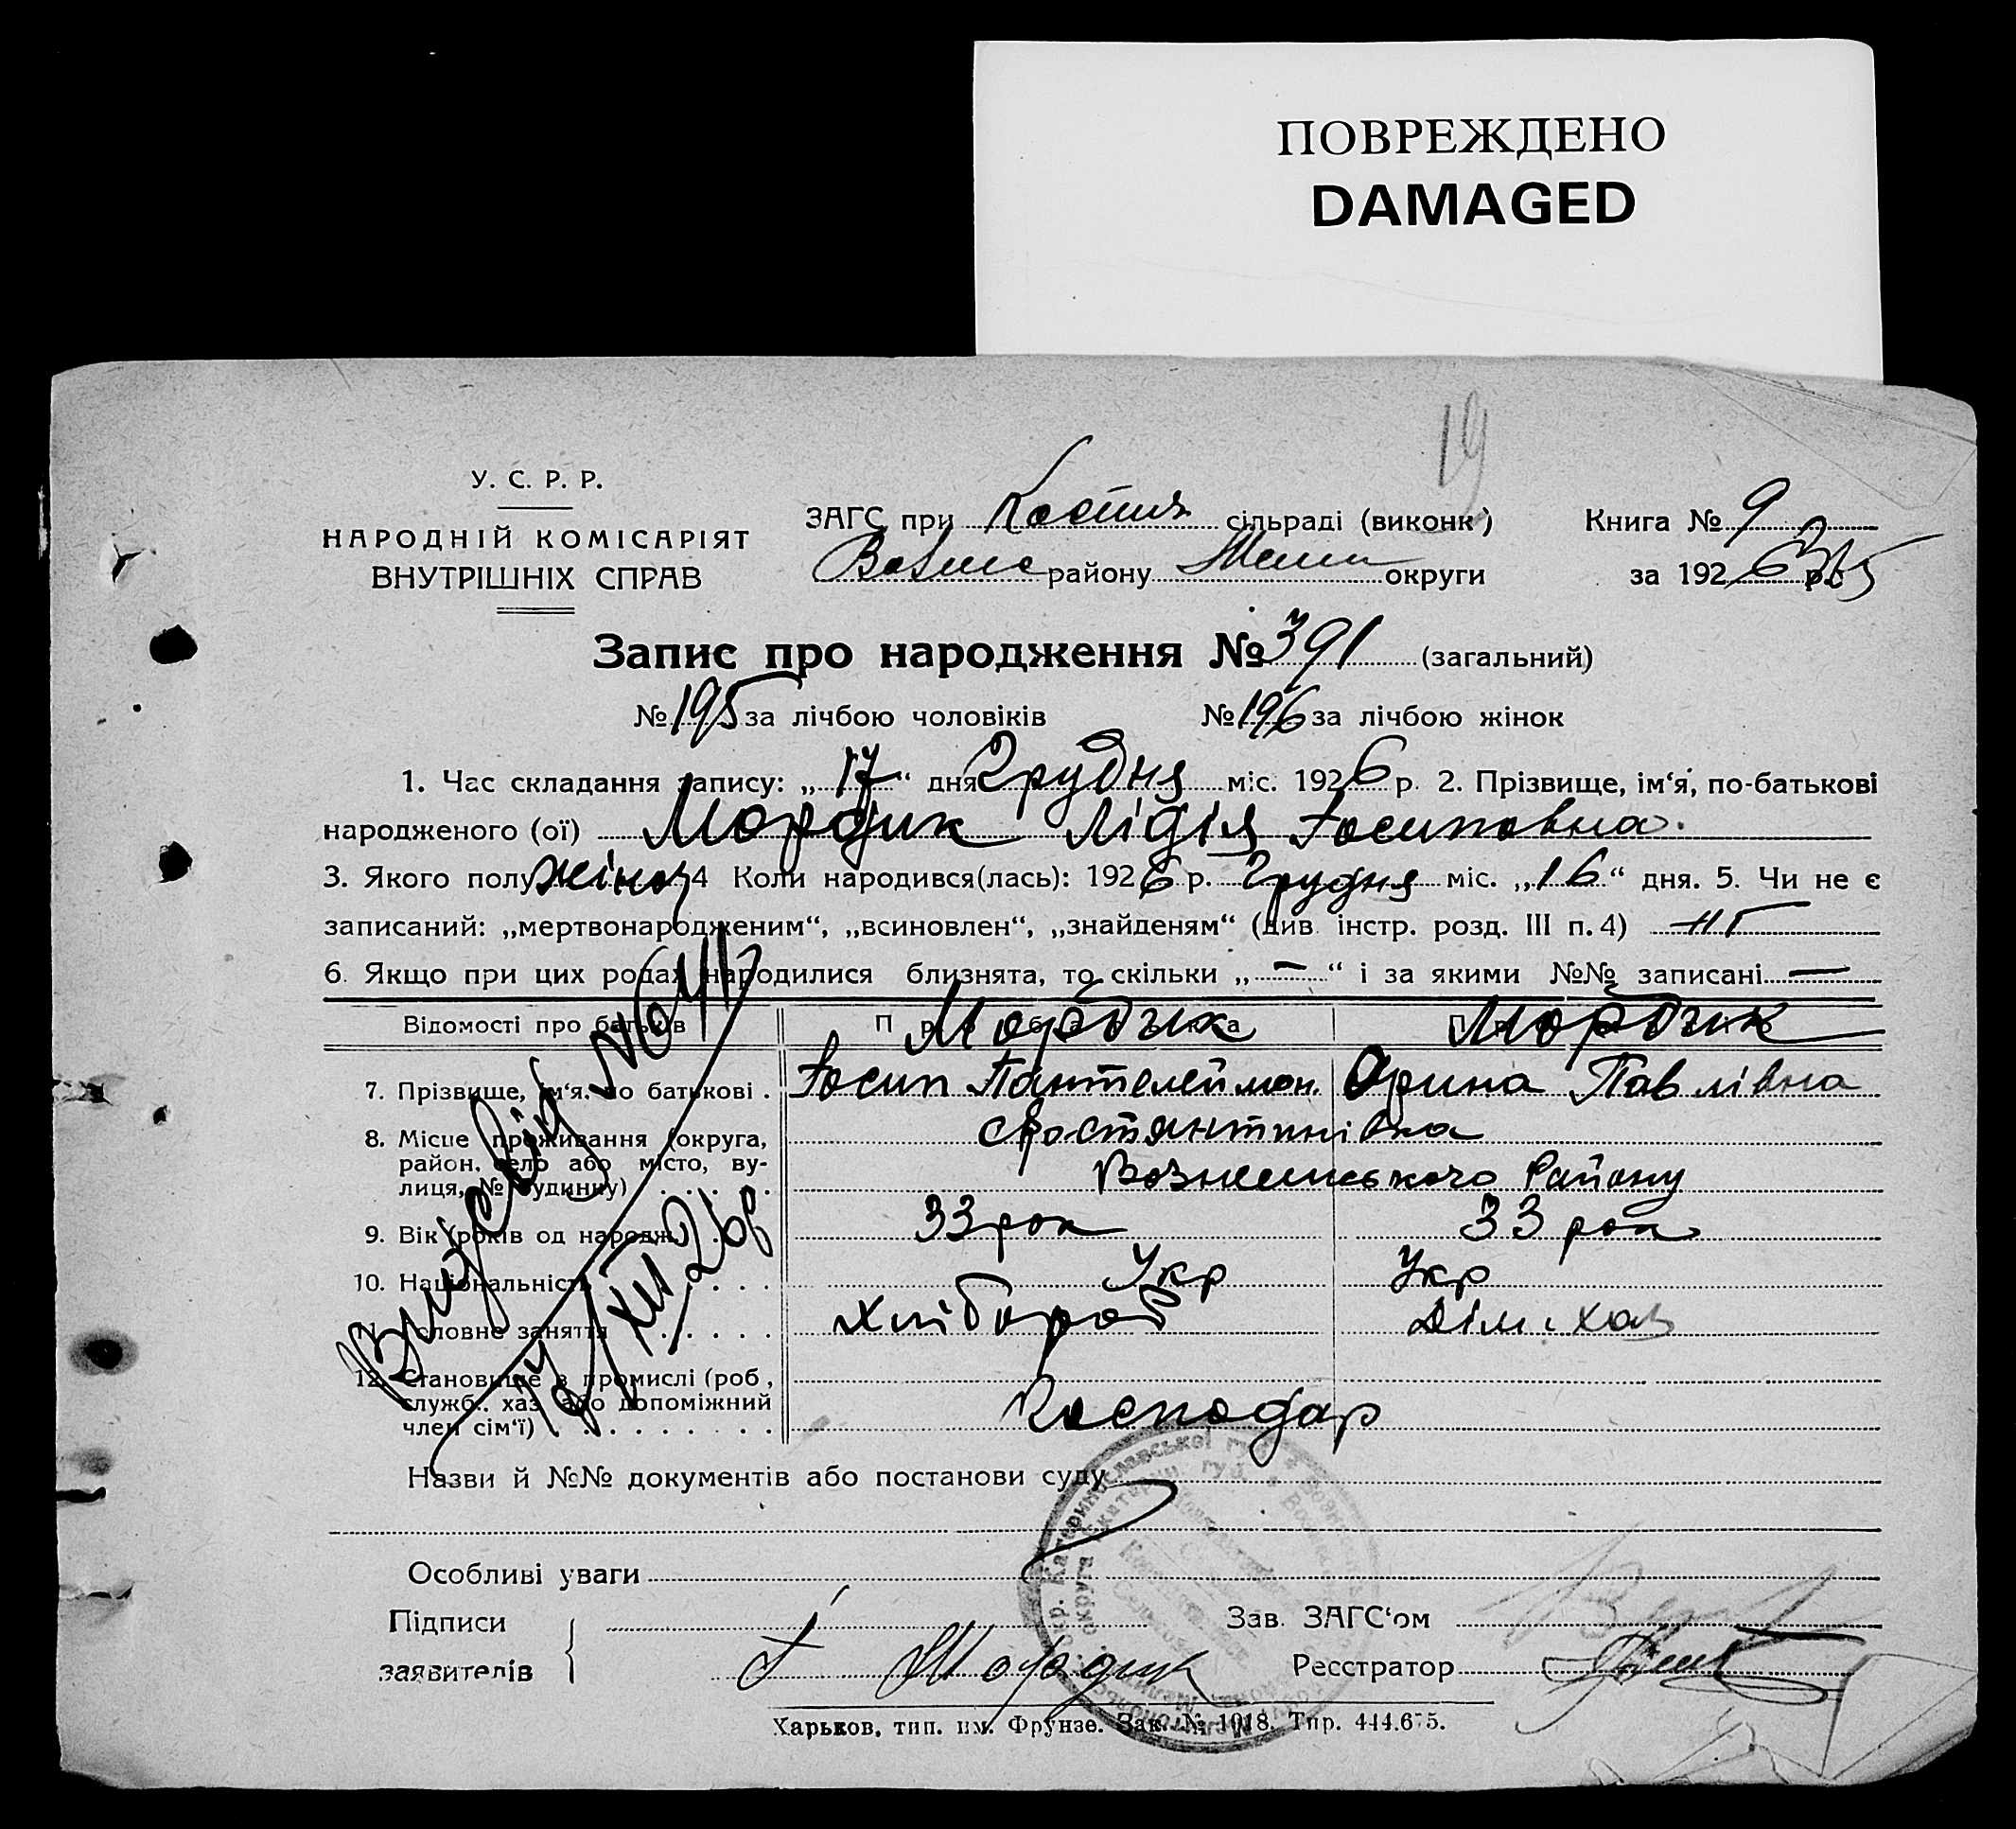 ПОВРЕЖДЕНО
DAMAGED
19
У. С. Р. Р.
НАРОДНІЙ КОМІСАРІЯТ
ВНУТРІШНІХ СПРАВ
ЗАГС при сільраді (виконк)
району округи
Книга № 9
за 1926 р.
Запис про народження № 391 (загальний)
№ 195 за лічбою чоловіків № 196 за лічбою жінок
1. Час складання запису: „17“ дня Грудня міс. 1926 р. 2. Прізвище, ім‘я, по-батькові
народженого (ої) Мордик Лідія Йосиповна.
3. Якого полу жіноч 4 Коли народився(лась): 1926 р. Грудня міс. „16“ дня. 5. Чи не є
записаний: „мертвонародженим“, „всиновлен“, „знайденям“ (див. інстр. розд. III п. 4) ні
6. Якщо при цих родах народилися близнята, то скільки „—“ і за якими №№ записані —
Відомості про батьків Про батька Мордик Про матір Мордик
7. Прізвище, ім‘я, по батькові . Йосип Пантелеймон. Орина Павлівна
8. Місце проживання (округа, Костянтинівка
район, село або місто, ву-
лиця, № будинку) . . . . . Вознесенського Району
9. Вік (років од народж.) . . 33 рок 33 рок
10. Національність . . . . Укр Укр
11. Головне заняття . . . . . хлібороб Дім. хаз
12. Становище в промислі (роб.,
служб., хаз. або допоміжний
член сім‘ї) . . . . . . . . . . Господар
Видано Вид № 411
17/XII 26 р
Назви й №№ документів або постанови суду
Особливі уваги
Підписи Зав. ЗАГС‘ом
заявителів Й Мордик Реєстратор
Харьков, тип. им. Фрунзе. Зак. № 1018. Тир. 444.675.